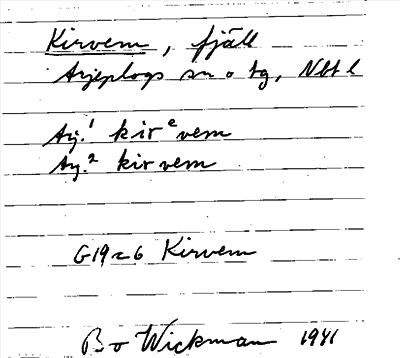 Kirvem, fjäll
Arjeplogs sn o tg, Nbt l
Arj.¹ kirᵉvem
Arj.² kirvem
G19 Kirvem
Bo Wickman 1941